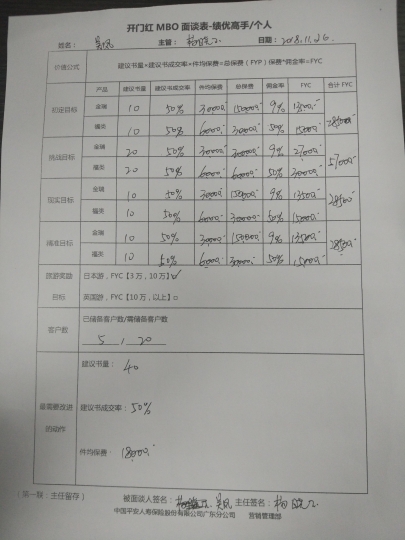 开门红 MBO 面谈表-绩优高手/个人
姓名： 主管： 日期：2018.11.26
价值公式 建议书量×建议书成交率×件均保费=总保费（FYP）保费*佣金率=FYC
产品 建议书量 建议书成交率 件均保费 总保费 佣金率 FYC 合计 FYC
初定目标 金瑞 10 50% 30000 150000 9% 13500 28500
福类 10 50% 6000 30000 50% 15000
挑战目标 金瑞 20 50% 30000 9% 27000 57000
福类 20 50% 6000 60000 50% 30000
现实目标 金瑞 10 50% 30000 150000 9% 13500 28500
福类 10 50% 6000 30000 50% 15000
瞄准目标 金瑞 10 50% 30000 150000 9% 13500 28500
福类 10 50% 6000 30000 50% 15000
旅游奖励 日本游，FYC【3万，10万】☑
目标 英国游，FYC【10万，以上】□
客户数 已储备客户数/需储备客户数
5 / 20
建议书量：40
最需要改进 建议书成交率：50%
的动作
件均保费：18000
（第一联：主任留存） 被面谈人签名： 主任签名：
中国平安人寿保险股份有限公司广东分公司 营销管理部